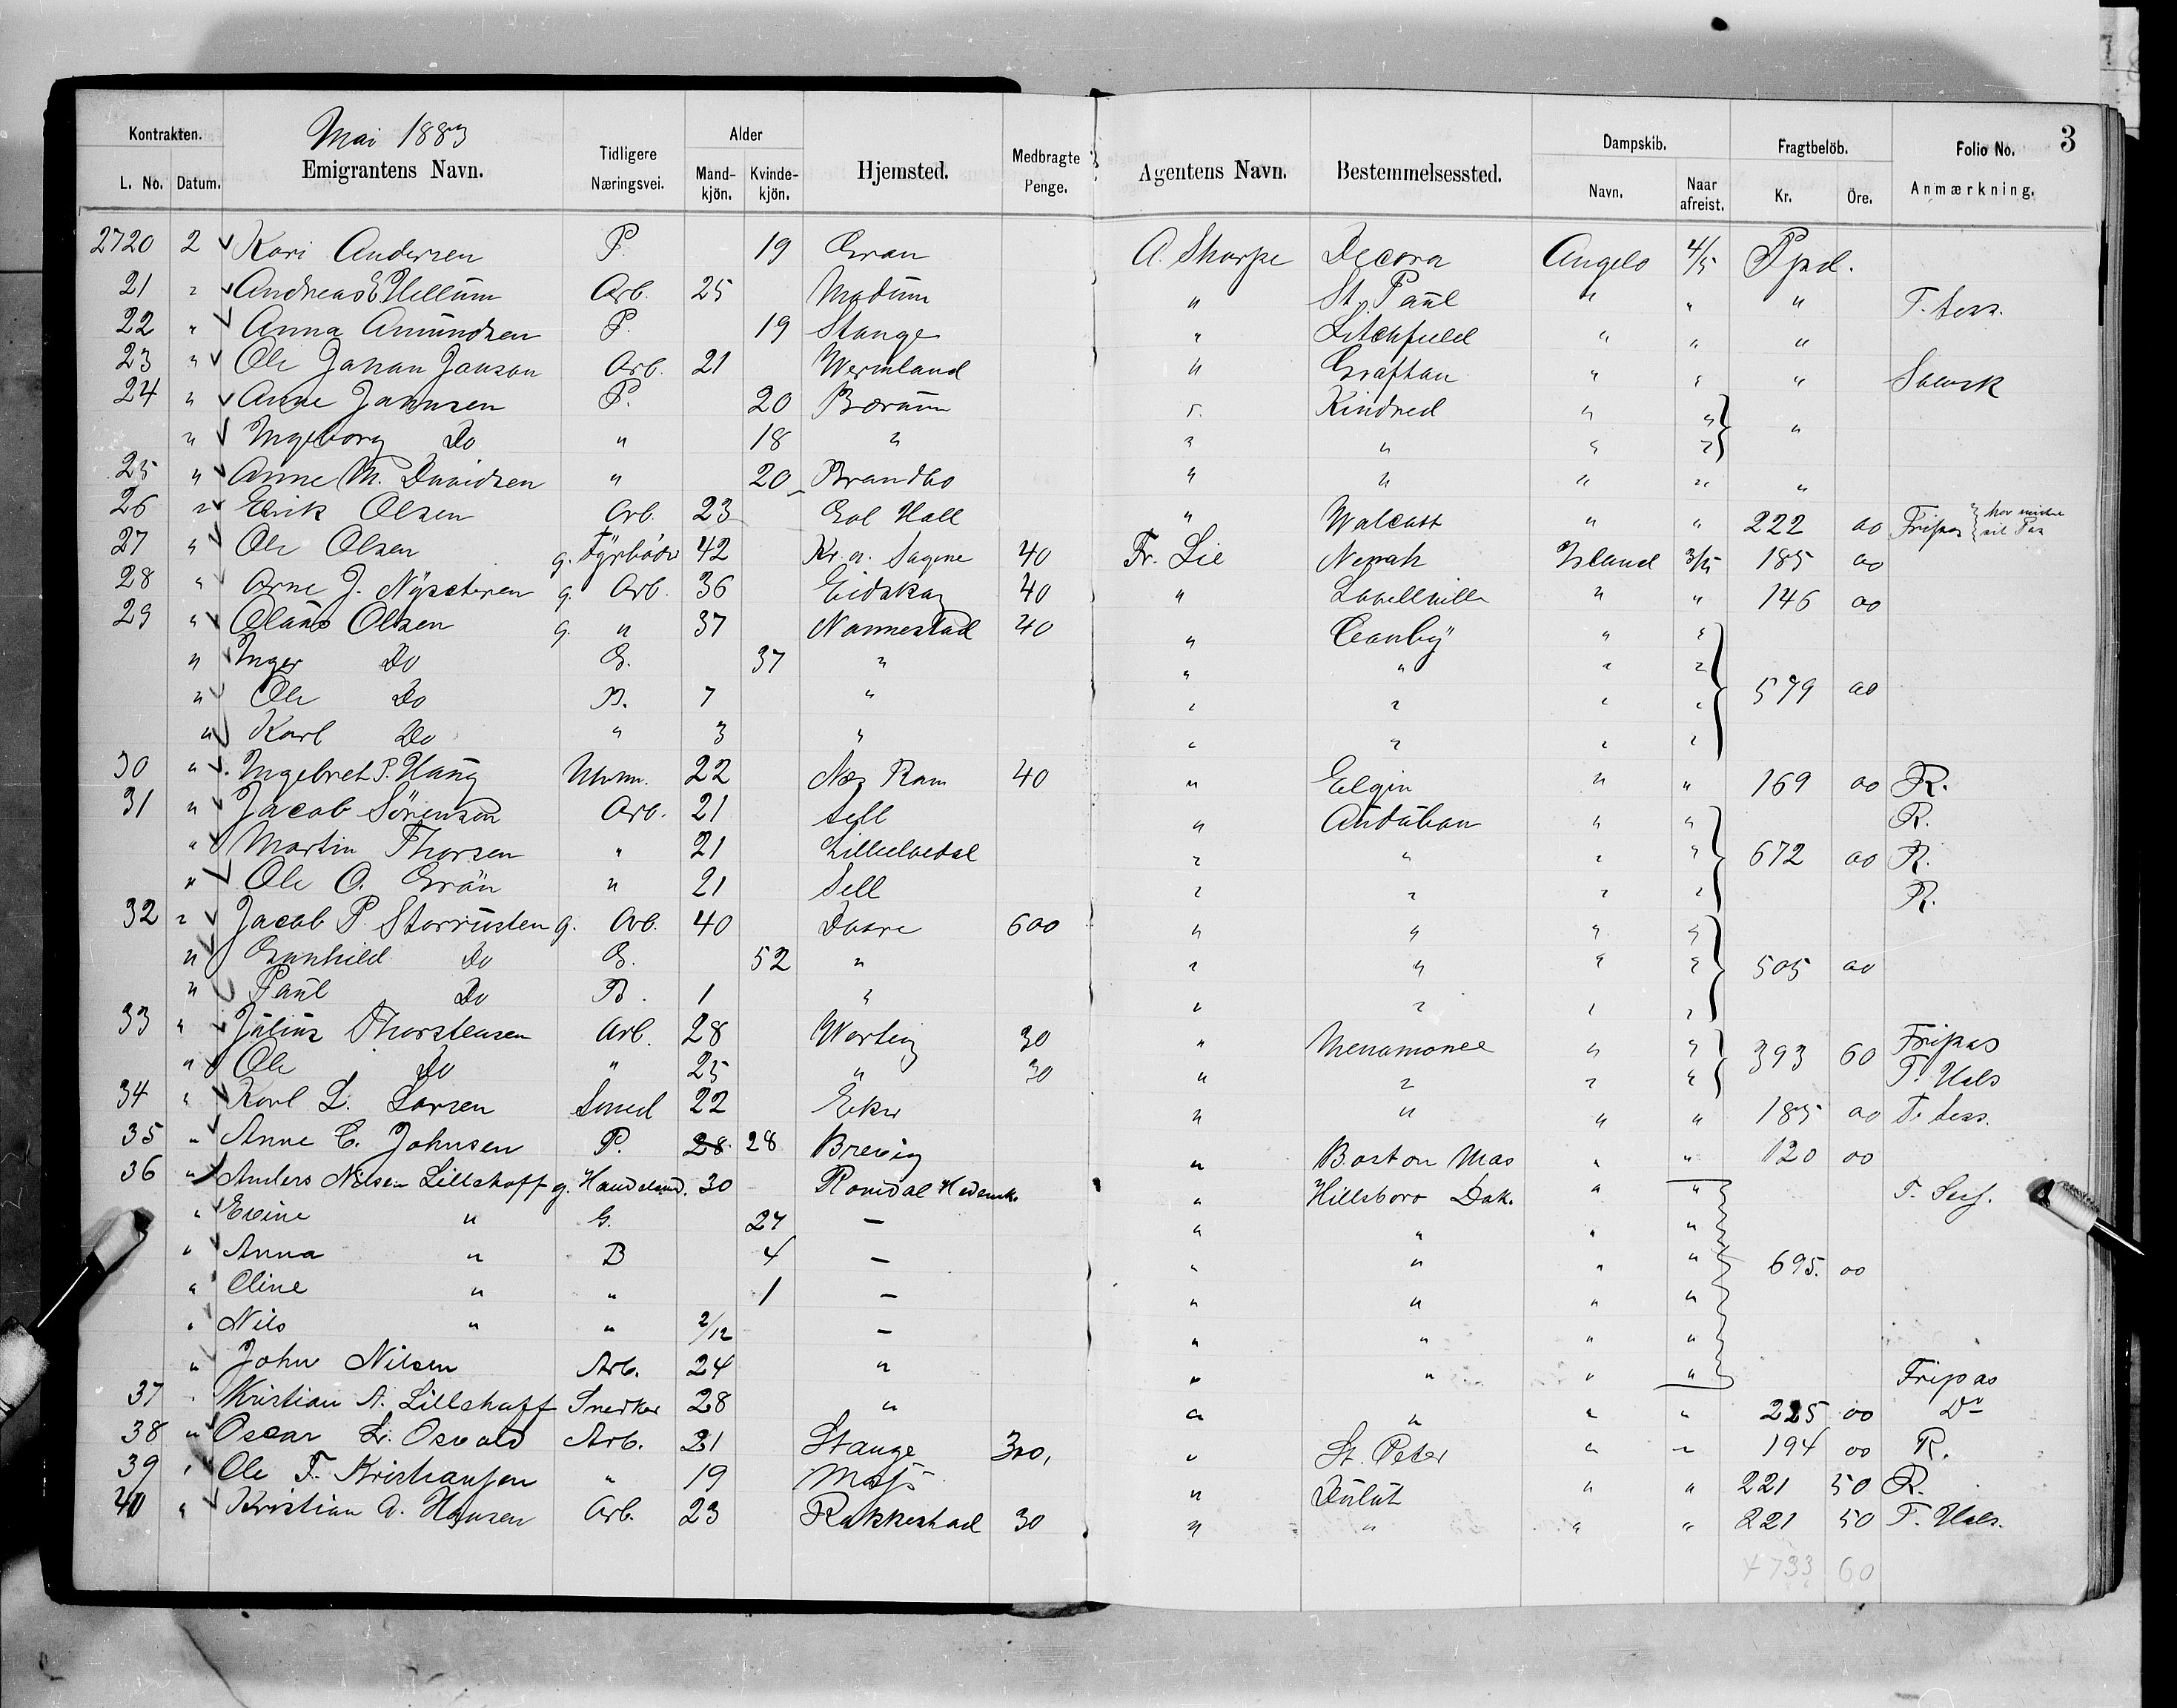 3
Kontrakten. Mai 1883 Alder Dampskib. Fragtbelöb. Folio No.
L. No. Datum. Emigrantens Navn. Tidligere Næringsvei. Mand-kjön. Kvinde-kjön. Hjemsted. Medbragte Penge. Agentens Navn. Bestemmelsessted. Navn. Naar afreist. Kr. Öre. Anmærkning.
2720 2 Kari Andersen P. 19 Gran A. Sharpe Decora Angelo 4/5 Ppd.
21 " Andreas E. Hellum Arb. 25 Modum " St. Paul " " " T. Sess.
22 " Anna Amundsen P. 19 Stange " Litchfield " " "
23 " Ole Johan Janson Arb. 21 Wermland " Graftan " " " Svensk
24 " Anne Johnsen P. 20 Bærum " Kindred " " "
" Ingeborg Do " 18 " " " " "
25 " Anne M. Davidsen " 20 Brandbo " " " " "
26 " Erik Olsen Arb. 23 Gol Hall " Walcott " " 222 00 Fripas
27 " Ole Olsen g. Fyrböder 42 Kr.a. Sagene 40 Fr. Lie Nepah Island 3/5 185 00
28 " Arne J. Nyseteren g. Arb. 36 Eidskog 40 " Lowellville " " 146 00
29 " Olaus Olsen g. " 37 Nannestad 40 " Canby " "
" Inger Do G. 37 " " " " "
" Ole Do B. 7 " " " " " 579 00
" Karl Do " 3 " " " " "
30 " Ingebret P. Haug Uhrm. 22 Næs Rom 40 " Elgin " " 169 00 R.
31 " Jacob Sörensen Arb. 21 Sell " Audubon " " R.
" Martin Thorsen " 21 Lilleelvedal " " " " 672 00 R.
" Ole O. Grön " 21 Sell " " " " R.
32 " Jacob P. Storrusten g. Arb. 40 Dovre 600 " " " "
" Gunhild Do G. 52 " " " " " 505 00
" Paul Do B. 1 " " " " "
33 " Julius Thorstensen Arb. 28 Worteig 30 " Menamonee " " 393 60 Fripas
" Ole Do " 25 " 30 " " " " T. Hals
34 " Karl L. Larsen Smed 22 Eker " " " " 185 00 T. Sess.
35 " Anne C. Johnsen P. 28 28 Brevig " Boston Mas " " 120 00
36 " Anders Nilsen Lillehoff g. Handelsmd. 30 Romdal Hedemk. " Hillsboro Dak. " " T. Sess.
" Eveine " G. 27 — " " " "
" Anna " B 4 — " " " " 695. 00
" Oline " " 1 — " " " "
" Nils " " 2/12 — " " " "
" John Nilsen Arb. 24 " " " " " Fripas
37 " Kristian N. Lillehoff Snedker 28 " " " " " 225 00 Do
38 " Oscar L. Osvald Arb. 21 Stange 300, " St. Peter " " 194 00 R.
39 " Ole F. Kristiansen " 19 Moss " Dulut " " 221 50 R.
40 " Kristian A. Hansen Arb. 23 Rakkestad 30 " " " " 221 50 T. Hals.
4733 60